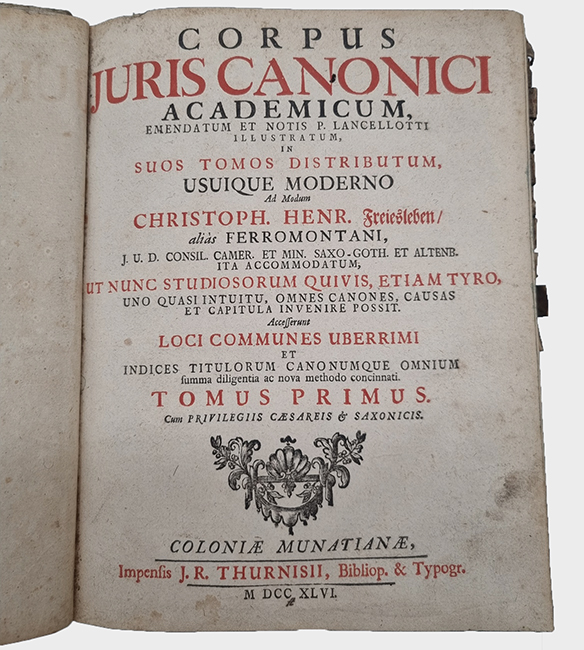 CORPUS
JURIS CANONICI
ACADEMICUM,
EMENDATUM ET NOTIS P. LANCELLOTTI
ILLUSTRATUM,
IN
SUOS TOMOS DISTRIBUTUM,
USUIQUE MODERNO
Ad Modum
CHRISTOPH. HENR. Freiesleben/
aliàs FERROMONTANI,
J. U. D. CONSIL. CAMER. ET MIN. SAXO-GOTH. ET ALTENB.
ITA ACCOMMODATUM,
UT NUNC STUDIOSORUM QUIVIS, ETIAM TYRO,
UNO QUASI INTUITU, OMNES CANONES, CAUSAS
ET CAPITULA INVENIRE POSSIT.
Accesserunt
LOCI COMMUNES UBERRIMI
ET
INDICES TITULORUM CANONUMQUE OMNIUM
summa diligentia ac nova methodo concinnati.
TOMUS PRIMUS.
Cum PRIVILEGIIS CÆSAREIS & SAXONICIS.
COLONIÆ MUNATIANÆ,
Impensis J. R. THURNISII, Bibliop. & Typogr.
M DCC XLVI.